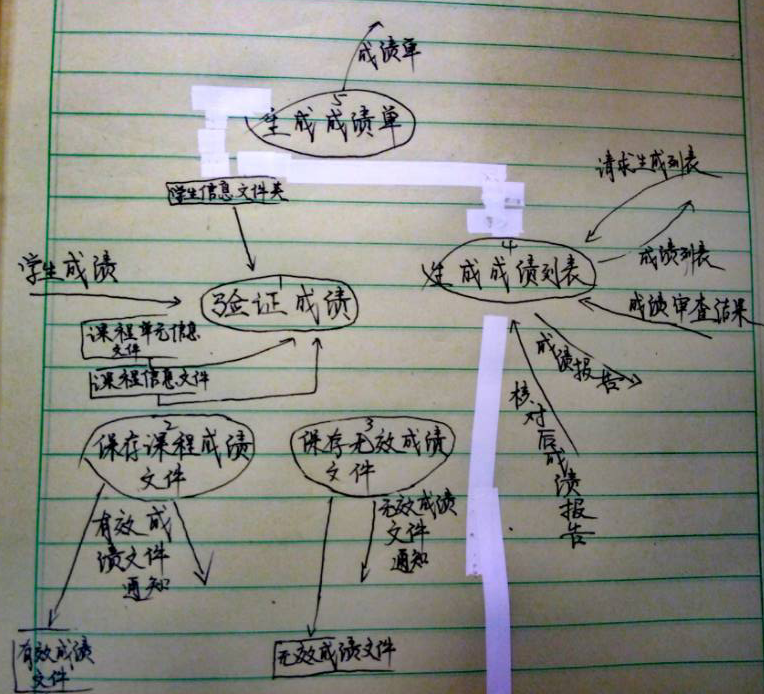 成绩单
5
生成成绩单
请求生成列表
学生信息文件夹
4
生成成绩列表
成绩列表
学生成绩
1
验证成绩
成绩审查结果
课程单元信息
文件
成绩报告
课程信息文件
核对后成绩报告
2
保存课程成绩
文件
3
保存无效成绩
文件
有效成
绩文件
通知
无效成绩
文件
通知
有效成绩
文件
无效成绩文件